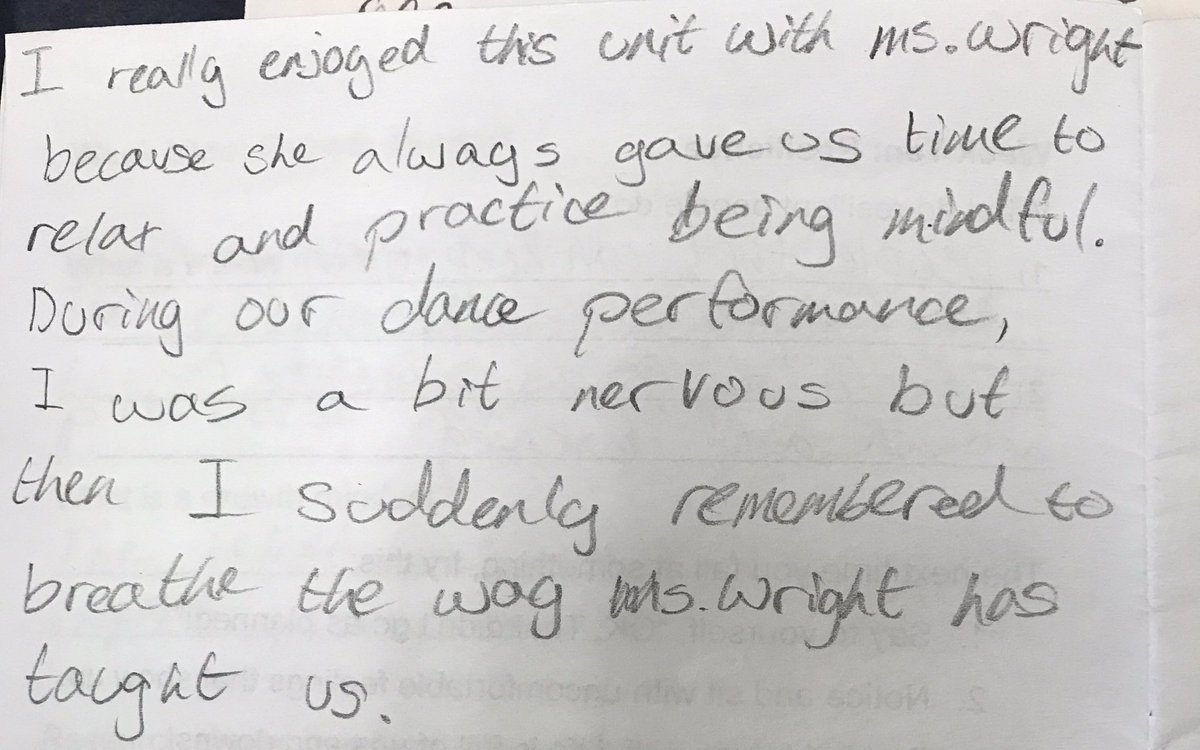 I really enjoyed this unit with ms. wright
because she always gave us time to
relax and practice being mindful.
During our dance performance,
I was a bit nervous but
then I suddenly remembered to
breathe the way ms. wright has
taught us.